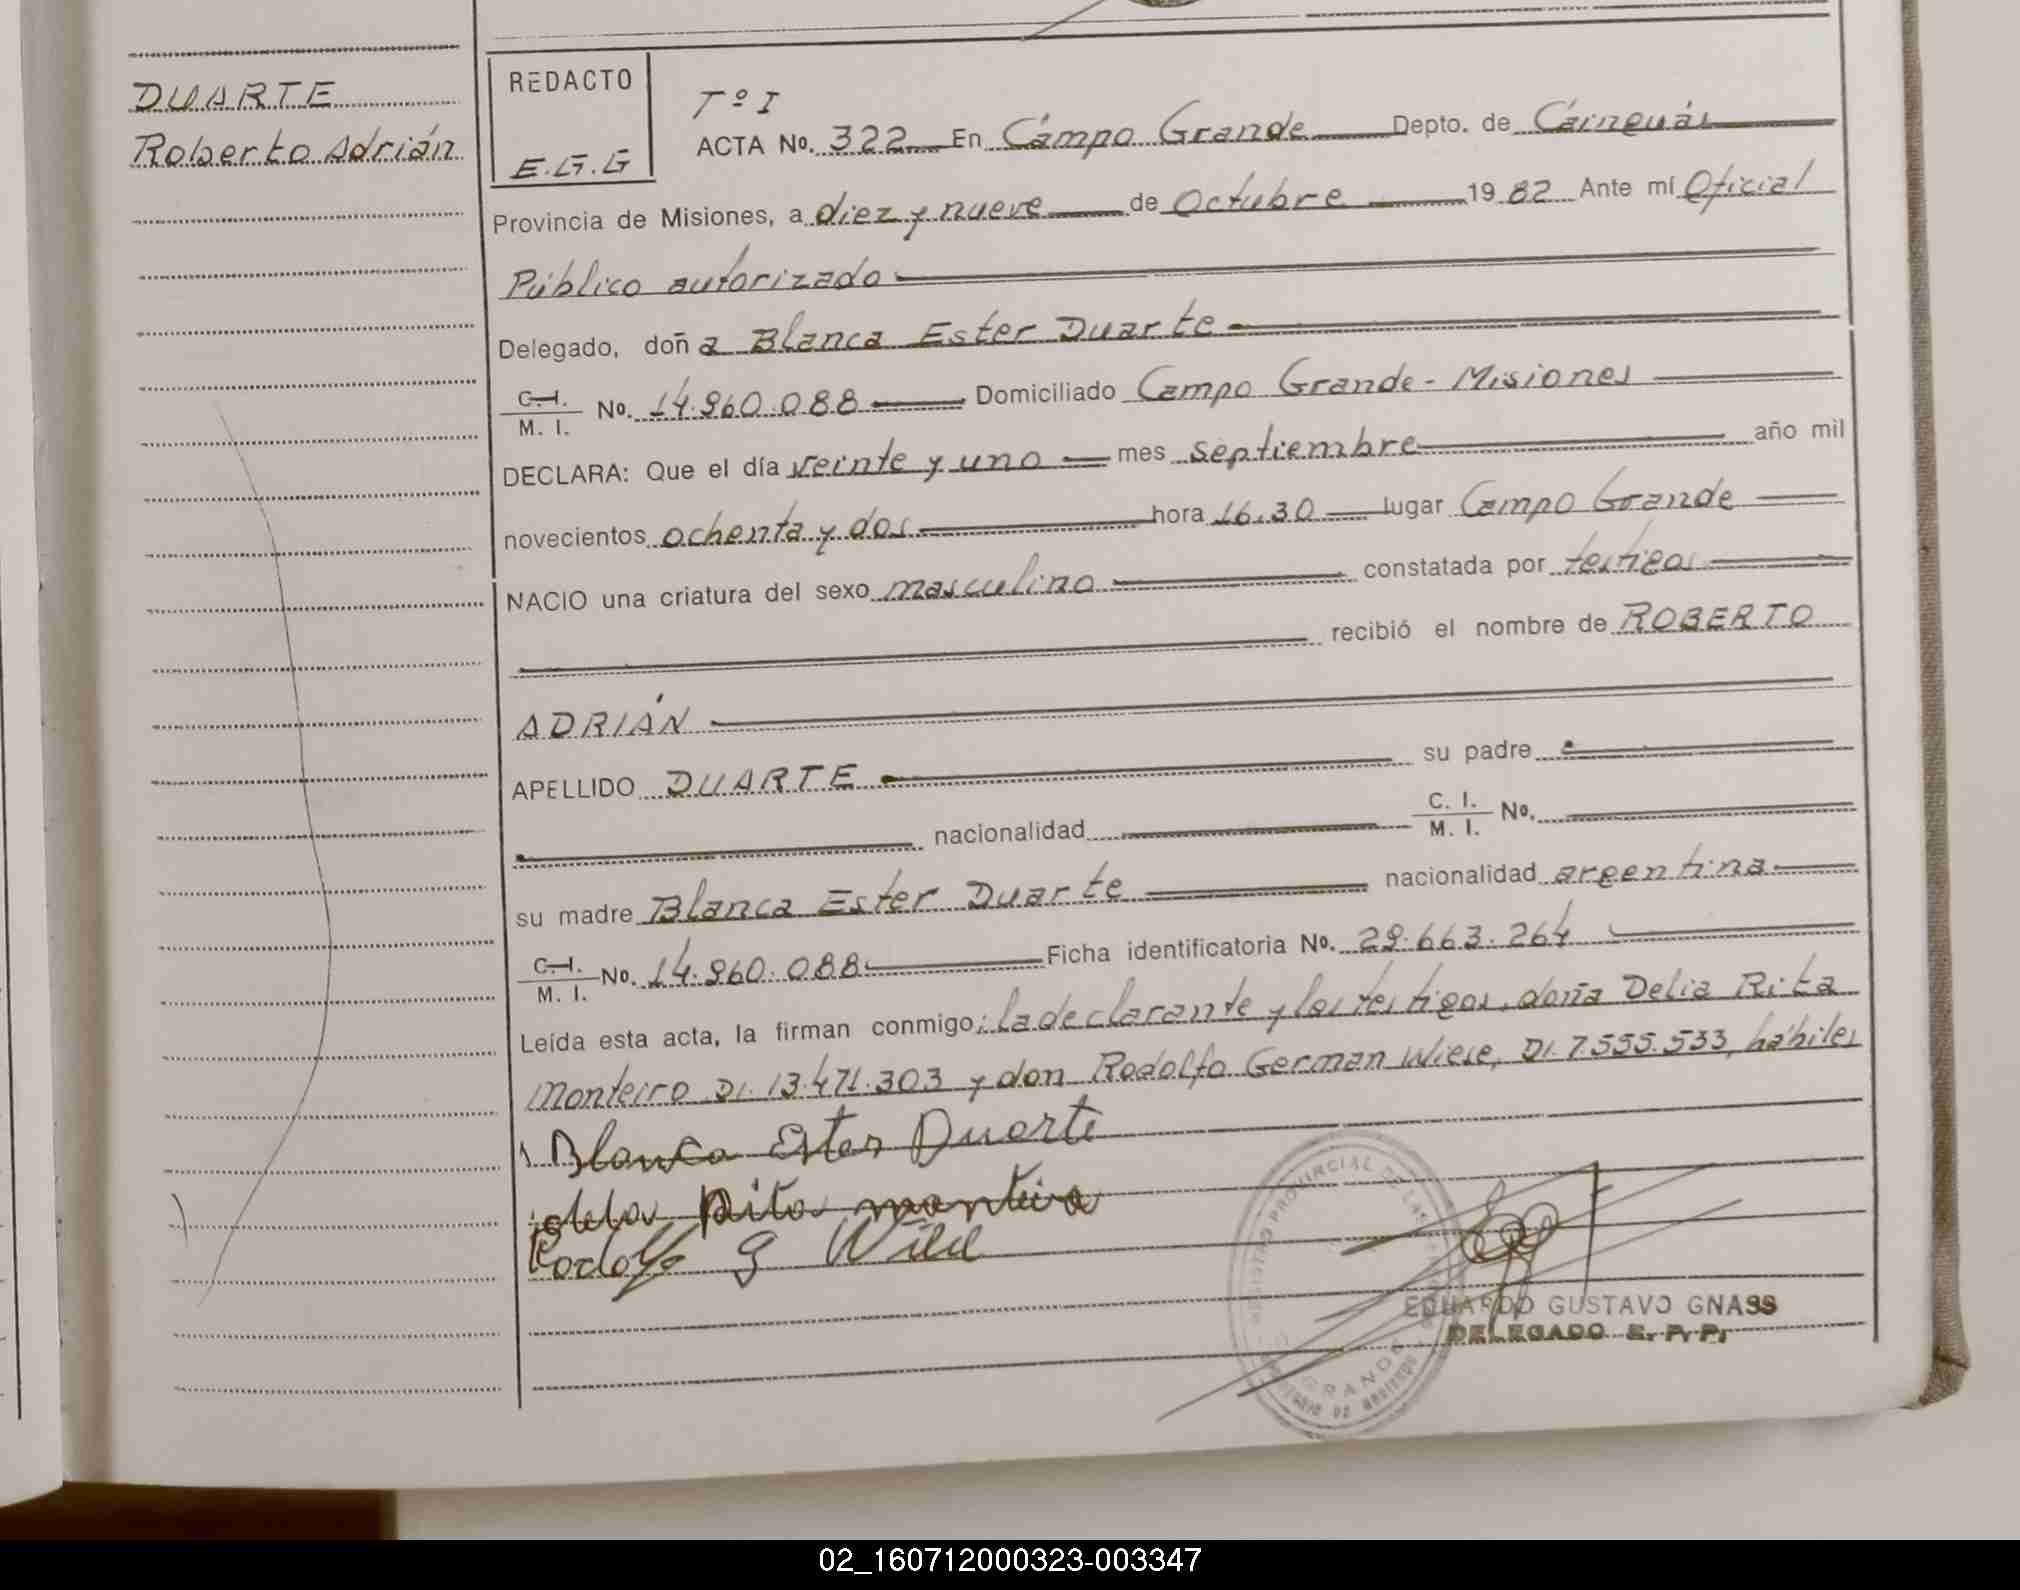 DUARTE
Roberto Adrián
REDACTO
E.G.G
Tº I
ACTA No. 322 En Campo Grande Depto. de Cainguás
Provincia de Misiones, a diez y nueve de Octubre 19 82 Ante mí Oficial
Público autorizado
Delegado, doña Blanca Ester Duarte
C.I.
M. I. No. 14.960.088 Domiciliado Campo Grande - Misiones
DECLARA: Que el día veinte y uno mes septiembre año mil
novecientos ochenta y dos hora 16.30 lugar Campo Grande
NACIO una criatura del sexo masculino constatada por testigos
recibió el nombre de ROBERTO
ADRIÁN
APELLIDO DUARTE su padre
nacionalidad C. I.
M. I. No.
su madre Blanca Ester Duarte nacionalidad argentina
C.I.
M. I. No. 14.960.088 Ficha identificatoria No. 29.663.264
Leída esta acta, la firman conmigo; la declarante y los testigos, doña Delia Rita
Monteiro DI. 13.471.303 y don Rodolfo German Wiese, DI. 7.555.533, hábiles
Blanca Ester Duarte
Rita
Rodolfo G
REGISTRO PROVINCIAL DE LAS
GRANDE
EDUARDO GUSTAVO GNASS
DELEGADO R. P. P.
02_160712000323-003347